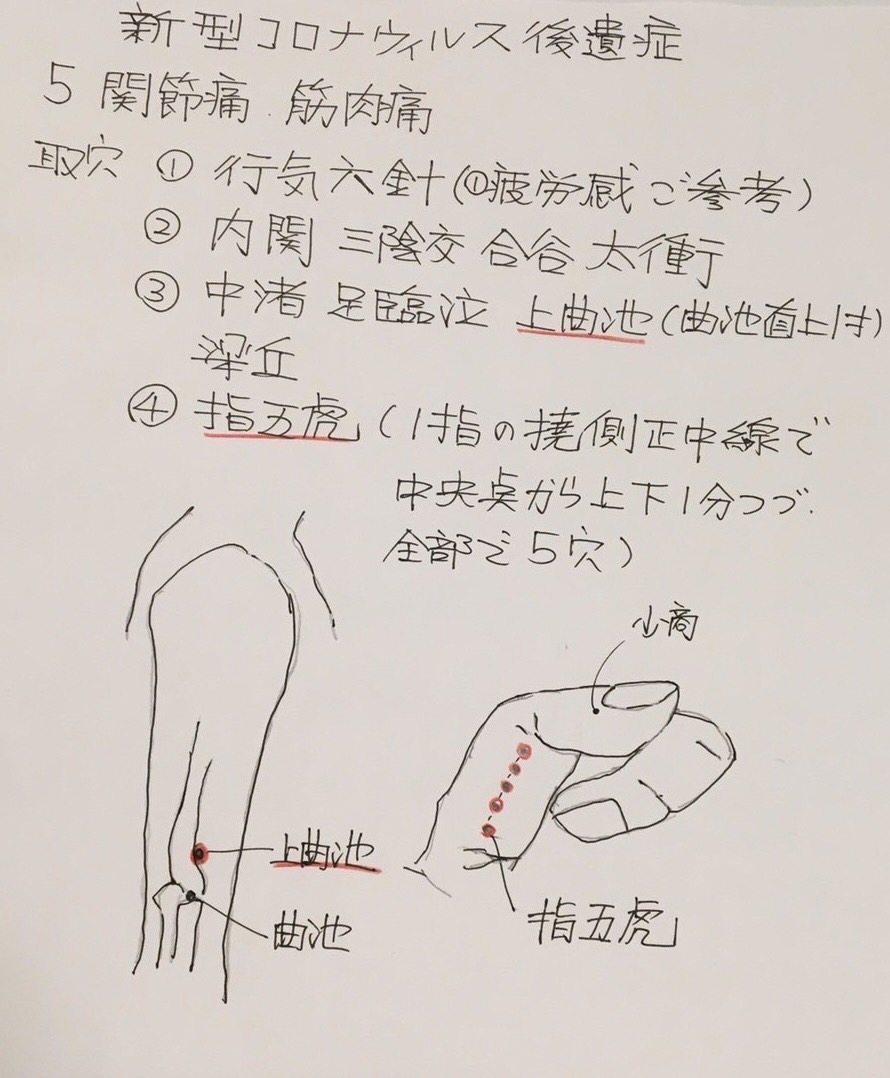 新型コロナウィルス後遺症
5 関節痛.筋肉痛
取穴 ① 行気六針(①疲労感ご参考)
② 内関 三陰交 合谷 太衝行
③ 中渚 足臨泣 上曲池(曲池直上1寸)
梁丘
④ 指五虎(1指の橈側正中線で
中央点から上下1分つづ.
全部で5穴)
少商
上曲池
曲池
指五虎